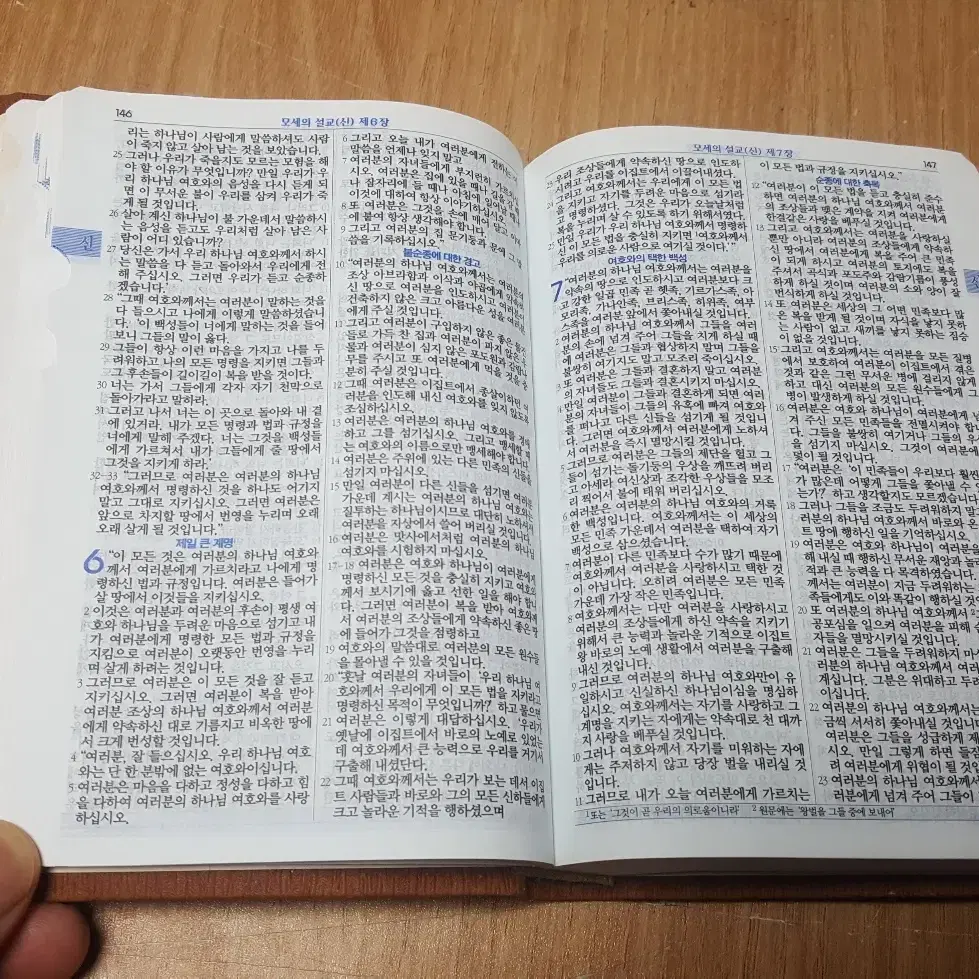 146
모세의 설교(신) 제6장
리는 하나님이 사람에게 말씀하셔도 사람
이 죽지 않고 살아 남는 것을 보았습니다.
25 그러나 우리가 죽을지도 모르는 모험을 해
야 할 이유가 무엇입니까? 만일 우리가 우
리 하나님 여호와의 음성을 다시 듣게 되
면 이 무서운 불이 우리를 삼켜 우리가 죽
게 될 것입니다.
26 살아 계신 하나님이 불 가운데서 말씀하시
는 음성을 듣고도 우리처럼 살아 남은 사
람이 어디 있습니까?
27 당신은 가서 우리 하나님 여호와께서 하시
는 말씀을 다 듣고 돌아와서 우리에게 전
해 주십시오. 그러면 우리가 듣고 순종하
겠습니다.'
28 "그때 여호와께서는 여러분이 말하는 것을
다 들으시고 나에게 이렇게 말씀하셨습니
다. '이 백성들이 너에게 말하는 것을 들어
보니 그들의 말이 옳다.
29 그들이 항상 이런 마음을 가지고 나를 두
려워하고 나의 모든 명령을 지키면 그들과
그 후손들이 길이길이 복을 받을 것이다.
30 너는 가서 그들에게 각자 자기 천막으로
돌아가라고 말하라.
31 그리고 나서 너는 이 곳으로 돌아와 내 곁
에 있거라. 내가 모든 명령과 법과 규정을
너에게 말해 주겠다. 너는 그것을 백성들
에게 가르쳐서 내가 그들에게 줄 땅에서
그것을 지키게 하라.'
32-33 "그러므로 여러분은 여러분의 하나님
여호와께서 명령하신 것을 하나도 어기지
말고 그대로 지키십시오. 그러면 여러분은
앞으로 차지할 땅에서 번영을 누리며 오래
오래 살게 될 것입니다."
제일 큰 계명
6 "이 모든 것은 여러분의 하나님 여호와
께서 여러분에게 가르치라고 나에게 명
령하신 법과 규정입니다. 여러분은 들어가
살 땅에서 이것들을 지키십시오.
2 이것은 여러분과 여러분의 후손이 평생 여
호와 하나님을 두려운 마음으로 섬기고 내
가 여러분에게 명령한 모든 법과 규정을
지킴으로 여러분이 오랫동안 번영을 누리
며 살게 하려는 것입니다.
3 그러므로 여러분은 이 모든 것을 잘 듣고
지키십시오. 그러면 여러분이 복을 받아
여러분 조상의 하나님 여호와께서 여러분
에게 약속하신 대로 기름지고 비옥한 땅에
서 크게 번성할 것입니다.
4 "여러분, 잘 들으십시오. 우리 하나님 여호
와는 단 한 분밖에 없는 여호와이십니다.
5 여러분은 마음을 다하고 정성을 다하고 힘
을 다하여 여러분의 하나님 여호와를 사랑
하십시오.
6 그리고 오늘 내가 여러분에게 전하는 이
말씀을 언제나 잊지 말고
7 여러분의 자녀들에게 부지런히 가르치십
시오. 여러분은 집에 있을 때나 길을 갈 때
나 잠자리에 들 때나 아침에 일어날 때나
이것에 대하여 항상 이야기하십시오.
8 또 여러분은 그것을 손에 매어 달고 이마
에 붙여 항상 생각해야 합니다.
9 그리고 여러분의 집 문기둥과 문에 그 말
씀을 기록하십시오."
불순종에 대한 경고
10 "여러분의 하나님 여호와께서는 여러분의
조상 아브라함과 이삭과 야곱에게 약속하
신 땅으로 여러분을 인도하시고 여러분이
건축하지 않은 크고 아름다운 성을 여러분
에게 주실 것입니다.
11 그리고 여러분이 구입하지 않은 좋은 물건
들로 가득 찬 집과 여러분이 파지 않은 우
물과 여러분이 심지 않은 포도원과 감람나
무를 주시고 또 여러분에게 먹을 것을 충
분히 주실 것입니다.
12 그때 여러분은 이집트에서 종살이하던 여
러분을 인도해 내신 여호와를 잊지 않도록
조심하십시오.
13 여러분은 여러분의 하나님 여호와를 두려워
하고 그를 섬기십시오. 그리고 맹세할 때
는 여호와의 이름으로만 맹세해야 합니다.
14 여러분은 주위에 있는 다른 민족의 신들을
섬기지 마십시오.
15 만일 여러분이 다른 신들을 섬기면 여러분
가운데 계시는 여러분의 하나님 여호와는
질투하는 하나님이시므로 대단히 노하셔서
여러분을 지상에서 쓸어 버리실 것입니다.
16 여러분은 맛사에서처럼 여러분의 하나님
여호와를 시험하지 마십시오.
17-18 여러분은 여호와 하나님이 여러분에게
명령하신 모든 것을 충실히 지키고 여호와
께서 보시기에 옳고 선한 일을 해야 합니
다. 그러면 여러분이 복을 받아 여호와께
서 여러분의 조상들에게 약속하신 좋은 땅
에 들어가 그것을 점령하고
19 여호와의 말씀대로 여러분의 모든 원수들
을 몰아낼 수 있을 것입니다.
20 "훗날 여러분의 자녀들이 '우리 하나님 여
호와께서 우리에게 이 모든 법을 지키라고
명령하신 목적이 무엇입니까?' 하고 물으면
21 여러분은 이렇게 대답하십시오. '우리가
옛날에 이집트에서 바로의 노예로 있었는
데 여호와께서 큰 능력으로 우리를 거기서
구출해 내셨단다.
22 그때 여호와께서는 우리가 보는 데서 이집
트 사람들과 바로와 그의 모든 신하들에게
크고 놀라운 기적을 행하셨으며
모세의 설교(신) 제7장
147
23 우리 조상들에게 약속하신 땅으로 인도하
시려고 우리를 이집트에서 이끌어내셨다.
24 그리고 여호와께서는 우리에게 이 모든 법
을 지키고 자기를 두려운 마음으로 섬기라
고 명령하셨다. 그것은 우리가 오늘날처럼
복을 누리며 살 수 있도록 하기 위해서였다.
25 만일 우리가 우리 하나님 여호와께서 명령하
신 이 모든 법을 충실히 지키면 여호와께서
우리를 의로운 사람으로 여기실 것이다.'"
여호와의 택한 백성
7 "여러분의 하나님 여호와께서는 여러분을
약속의 땅으로 인도하시고 여러분보다 크
고 강한 일곱 민족 곧 헷족, 기르가스족, 아
모리족, 가나안족, 브리스족, 히위족, 여부
스족을 여러분 앞에서 쫓아내실 것입니다.
2 여러분의 하나님 여호와께서 그들을 여러
분의 손에 넘겨 주어 여러분이 그들을 치게 하실 때
여러분은 그들과 협상하지 말며 그들을
불쌍히 여기지도 말고 모조리 죽이십시오.
3 또 여러분은 그들과 결혼하지 말고 여러분
의 자녀들도 그들과 결혼시키지 마십시오.
4 만일 여러분이 그들과 결혼하게 되면 여러
분의 자녀들이 그들의 유혹에 빠져 여호와
를 떠나고 다른 신들을 섬기게 될 것입니
다. 그러면 여호와께서 여러분에게 노하셔
서 여러분을 즉시 멸망시킬 것입니다.
5 그러므로 여러분은 그들의 제단을 헐고 그
들이 섬기는 돌기둥의 우상을 깨뜨려 버리
고 아세라 여신상과 조각한 우상들을 모조
리 찍어서 불에 태워 버리십시오.
6 여러분은 여러분의 하나님 여호와의 거룩
한 백성입니다. 여호와께서는 이 세상의
모든 민족 가운데서 여러분을 택하여 자기
백성으로 삼으셨습니다.
7 여러분이 다른 민족보다 수가 많기 때문에
여호와께서 여러분을 사랑하시고 택한 것
이 아닙니다. 오히려 여러분은 모든 민족
가운데 가장 작은 민족입니다.
8 여호와께서는 다만 여러분을 사랑하시고
여러분의 조상들에게 하신 약속을 지키기
위해서 큰 능력과 놀라운 기적으로 이집트
왕 바로의 노예 생활에서 여러분을 구출해
내신 것입니다.
9 그러므로 여러분의 하나님 여호와만이 유
일하시고 신실하신 하나님이심을 명심하
십시오. 여호와께서는 자기를 사랑하고 그
계명을 지키는 자에게는 약속대로 천 대까
지 사랑을 베푸실 것입니다.
10 그러나 여호와께서 자기를 미워하는 자에
게는 주저하지 않고 당장 벌을 내리실 것
입니다.
11 그러므로 내가 오늘 여러분에게 가르치는
이 모든 법과 규정을 지키십시오."
순종에 대한 축복
12 "여러분이 이 모든 법을 듣고 충실히 준수
하면 여러분의 하나님 여호와께서 여러분
의 조상들과 맺은 계약을 지켜 여러분에게
한결같은 사랑을 베푸실 것입니다.
13 그리고 여호와께서는 여러분을 사랑하실
뿐만 아니라 여러분의 조상들에게 약속하
신 땅에서 여러분에게 복을 주어 큰 민족
이 되게 하시고 여러분의 토지에도 복을
주셔서 곡식과 포도주와 감람기름이 풍성
하게 하실 것이며 여러분의 소와 양이 잘
번식하게 하실 것입니다.
14 또 여러분은 세상의 그 어떤 민족보다 많
은 복을 받게 될 것이며 자식을 낳지 못하
는 사람이 없고 새끼를 낳지 못하는 짐승
이 없을 것입니다.
15 그리고 여호와께서는 여러분을 모든 질병
에서 보호하여 여러분이 이집트에서 겪은
것과 같은 그런 무서운 병에 걸리지 않게
하고 대신 여러분의 모든 원수들에게 그
병이 발생하게 하실 것입니다.
16 여러분은 여호와 하나님이 여러분에게 넘
겨 주신 모든 민족들을 전멸시켜야 합니
다. 그들을 불쌍히 여기거나 그들의 우상
을 섬기지 마십시오. 그것이 여러분에게
덫이 될 것입니다.
17 "여러분은 '이 민족들이 우리보다 훨씬
많은데 어떻게 그들을 쫓아낼 수 있
는가?' 하고 생각할지도 모르겠습니다.
18 그러나 그들을 조금도 두려워하지 말
여호와께서 바로와 온
트 땅에 행하신 일을 기억하십시오.
19 여러분은 여호와께서 여러분을 인도
해 내실 때 행하신 무서운 재앙과 놀라
적과 큰 능력을 다 목격하였습니다.
께서는 여러분이 지금 두려워하는
족들에게도 이와 똑같이 행하실 것
20 또 여러분의 하나님 여호와께서
공포심을 일으켜 여러분을 피해 숨
자들을 멸망시키실 것입니다.
21 여러분은 그들을 두려워하지 마
러분의 하나님 여호와께서 여러
계십니다. 그분은 위대하고 두려
이십니다.
22 여러분의 하나님 여호와께서는
금씩 서서히 쫓아내실 것입니
여러분은 그들을 성급하게 제
시오. 만일 그렇게 하면 들
여러분에게 위협이 될 것입
23 여러분의 하나님 여호와께서
러분에게 넘겨 주어 그들이
1 또는 '그것이 곧 우리의 의로움이니라'
2 원문에는 '왕벌을 그들 중에 보내어'
신